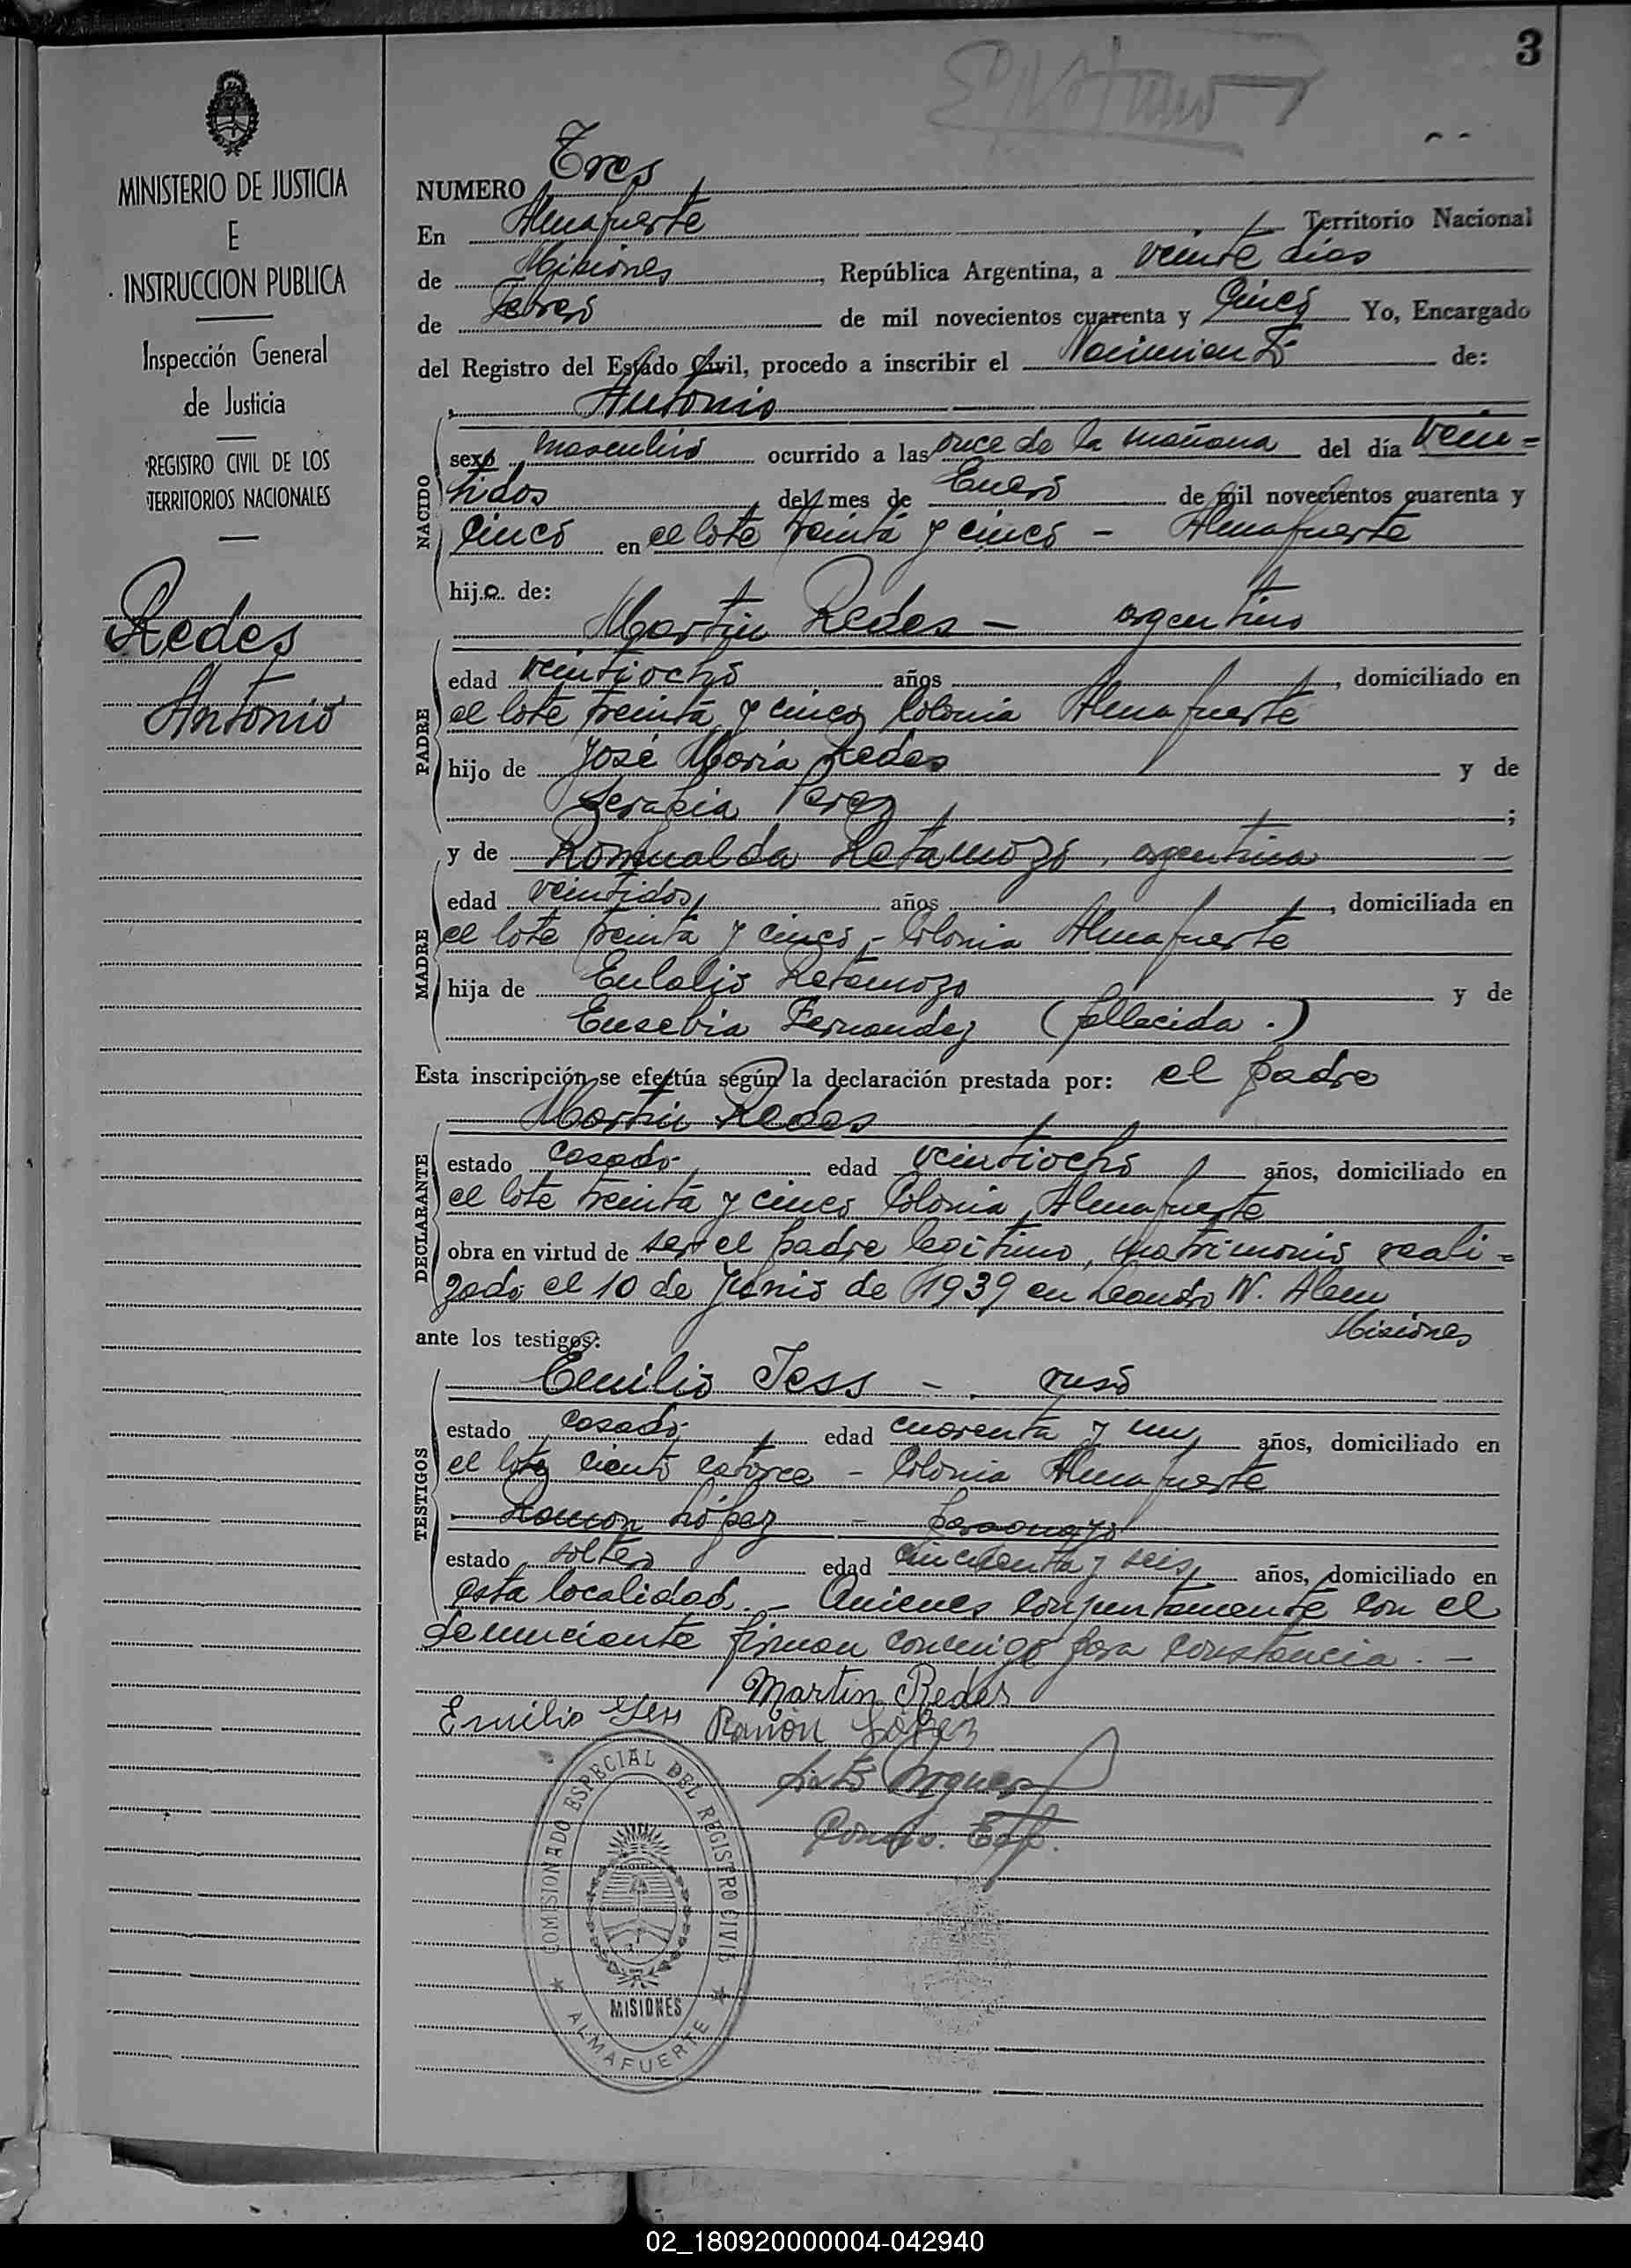 3
MINISTERIO DE JUSTICIA
E
INSTRUCCION PUBLICA
Inspección General
de Justicia
REGISTRO CIVIL DE LOS
TERRITORIOS NACIONALES
Redes
Antonio
NUMERO Tres
En Almafuerte Territorio Nacional
de Misiones, República Argentina, a veinte dias
de Febrero de mil novecientos cuarenta y Cinco Yo, Encargado
del Registro del Estado Civil, procedo a inscribir el Nacimiento de:
Antonio
NACIDO
sexo masculino ocurrido a las once de la mañana del día Vein=
tidos del mes de Enero de mil novecientos cuarenta y
Cinco en el lote treinta y cinco - Almafuerte
hijo de:
Martin Redes - argentino
PADRE
edad veintiocho años, domiciliado en
el lote treinta y cinco Colonia Almafuerte
hijo de José Maria Redes y de
Serapia Perez;
y de Romualda Retamozo, argentina
MADRE
edad veintidos años, domiciliada en
el lote treinta y cinco, - Colonia Almafuerte
hija de Eulalio Retamozo y de
Eusebia Fernandez (fallecida.)
Esta inscripción se efectúa según la declaración prestada por: el padre
Martin Redes
DECLARANTE
estado casado edad veintiocho años, domiciliado en
el lote treinta y cinco Colonia Almafuerte
obra en virtud de ser el padre legitimo, matrimonio reali=
zado el 10 de Junio de 1939 en Leandro N. Alem
Misiones
ante los testigos:
Emilio Jess - ruso
TESTIGOS
estado casado edad cuarenta y un años, domiciliado en
el lote ciento catorce - Colonia Almafuerte
Ramon López - paraguayo
estado soltero edad cincuenta y seis años, domiciliado en
esta localidad. - Quienes conjuntamente con el
denunciante firman conmigo para constancia. -
Martin Redes
Emilio Jess Ramón López
COMISIONADO ESPECIAL DEL REGISTRO CIVIL
MISIONES
ALMAFUERTE
02_180920000004-042940